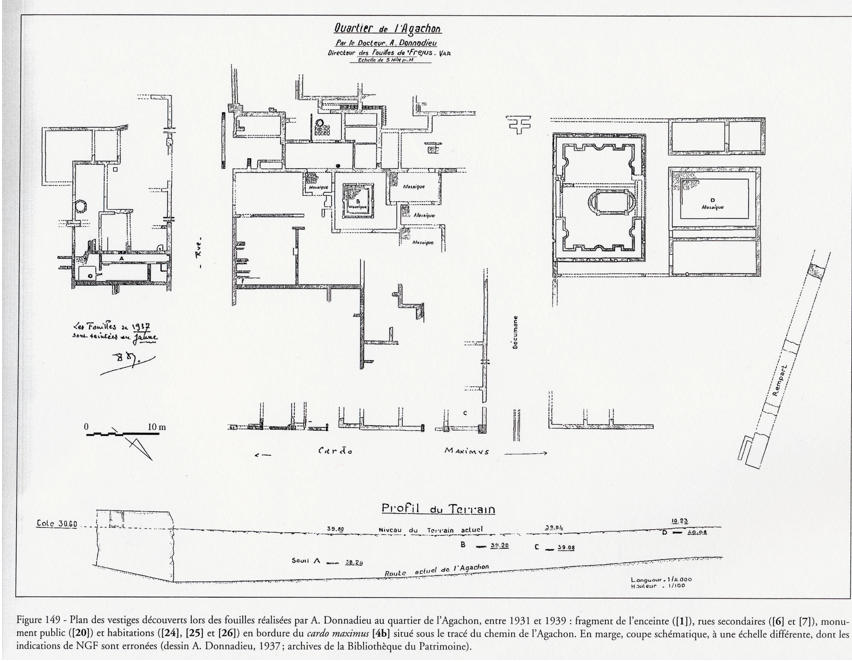 Quartier de l'Agachon
Par le Docteur A. Donnadieu
Directeur des Fouilles de Fréjus. Var
Echelle de 5 m/m p. M
Mosaique
B
Mosaique
Mosaique
Mosaique
Mosaique
D
Mosaique
A
- Rue -
Les Fouilles de 1937
sont teintées en jaune
Décumane
Rempart
C
0 10 m
← Cardo Maximus →
Profil du Terrain
Niveau du Terrain actuel
B 39.20
C 39.08
D
Seuil A
Route actuel de l'Agachon
Longueur. 1/2.000
Hauteur. 1/100
Figure 149 - Plan des vestiges découverts lors des fouilles réalisées par A. Donnadieu au quartier de l'Agachon, entre 1931 et 1939 : fragment de l'enceinte ([1]), rues secondaires ([6] et [7]), monu-
ment public ([20]) et habitations ([24], [25] et [26]) en bordure du cardo maximus [4b] situé sous le tracé du chemin de l'Agachon. En marge, coupe schématique, à une échelle différente, dont les
indications de NGF sont erronées (dessin A. Donnadieu, 1937 ; archives de la Bibliothèque du Patrimoine).